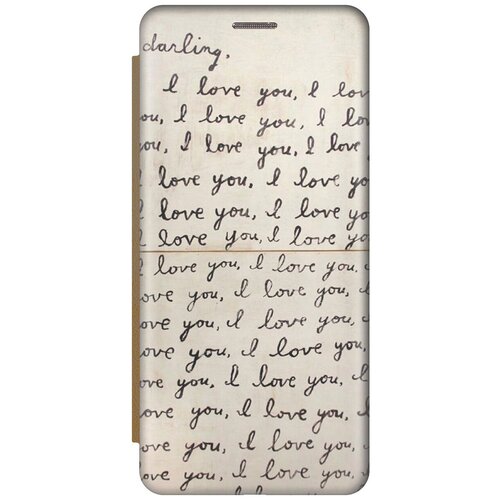 darling,
I love you, I lov
ou, I love you, I love
you, I love you, I love
love you, I love you
I love you, I love yo
I love you, I love yo
I love you, I love you,
love you, I love you,
ove you, I love you,
ove you, I love you,
ove you, I love you, I
ove you, I love you, I
ove you, I love you, I
love you, I love you